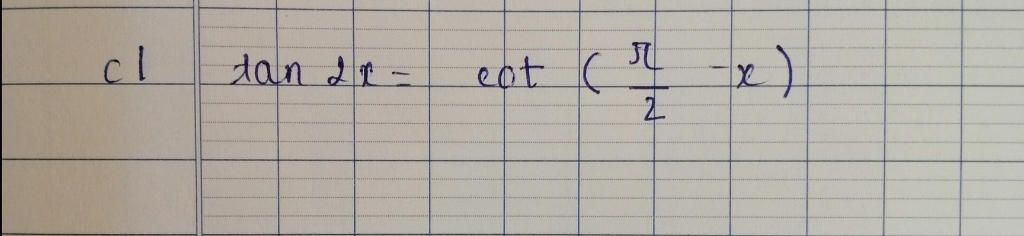 c) tan 2x = cot (π/2 - x)